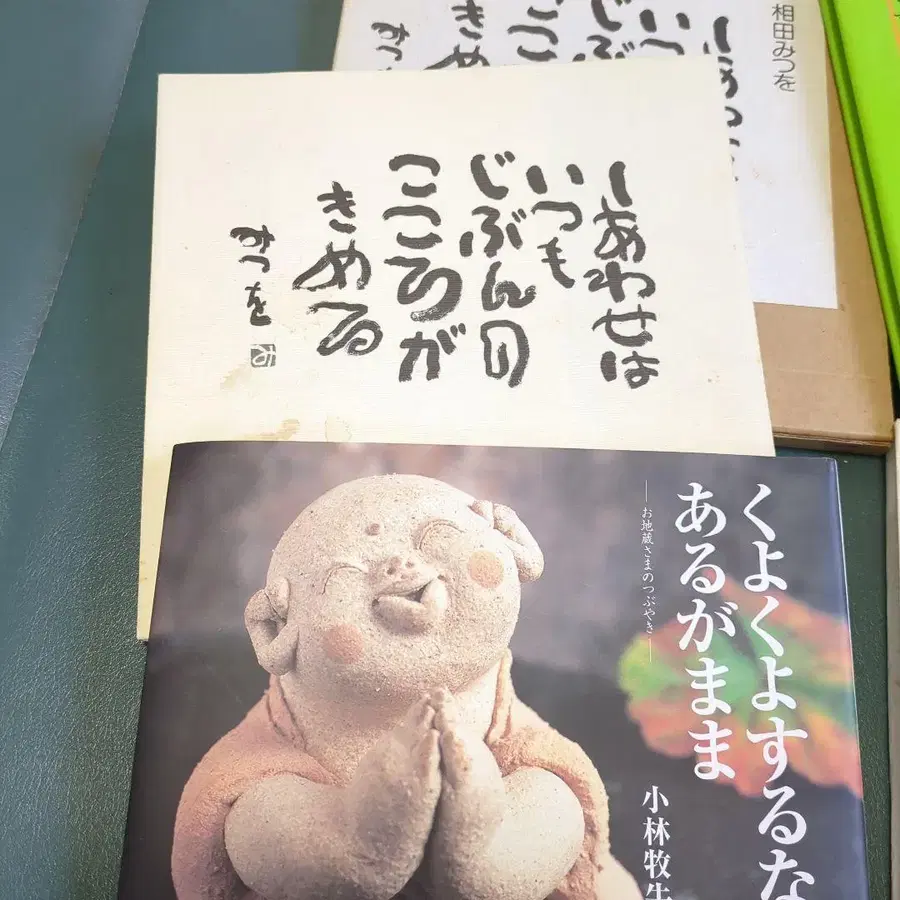 相田みつを
いつ
じぶ
ここ
きめ
みつ
しあわせは
いつも
じぶんの
こころが
きめる
みつを
くよくよするな
あるがまま
―お地蔵さまのつぶやき―
小林牧牛